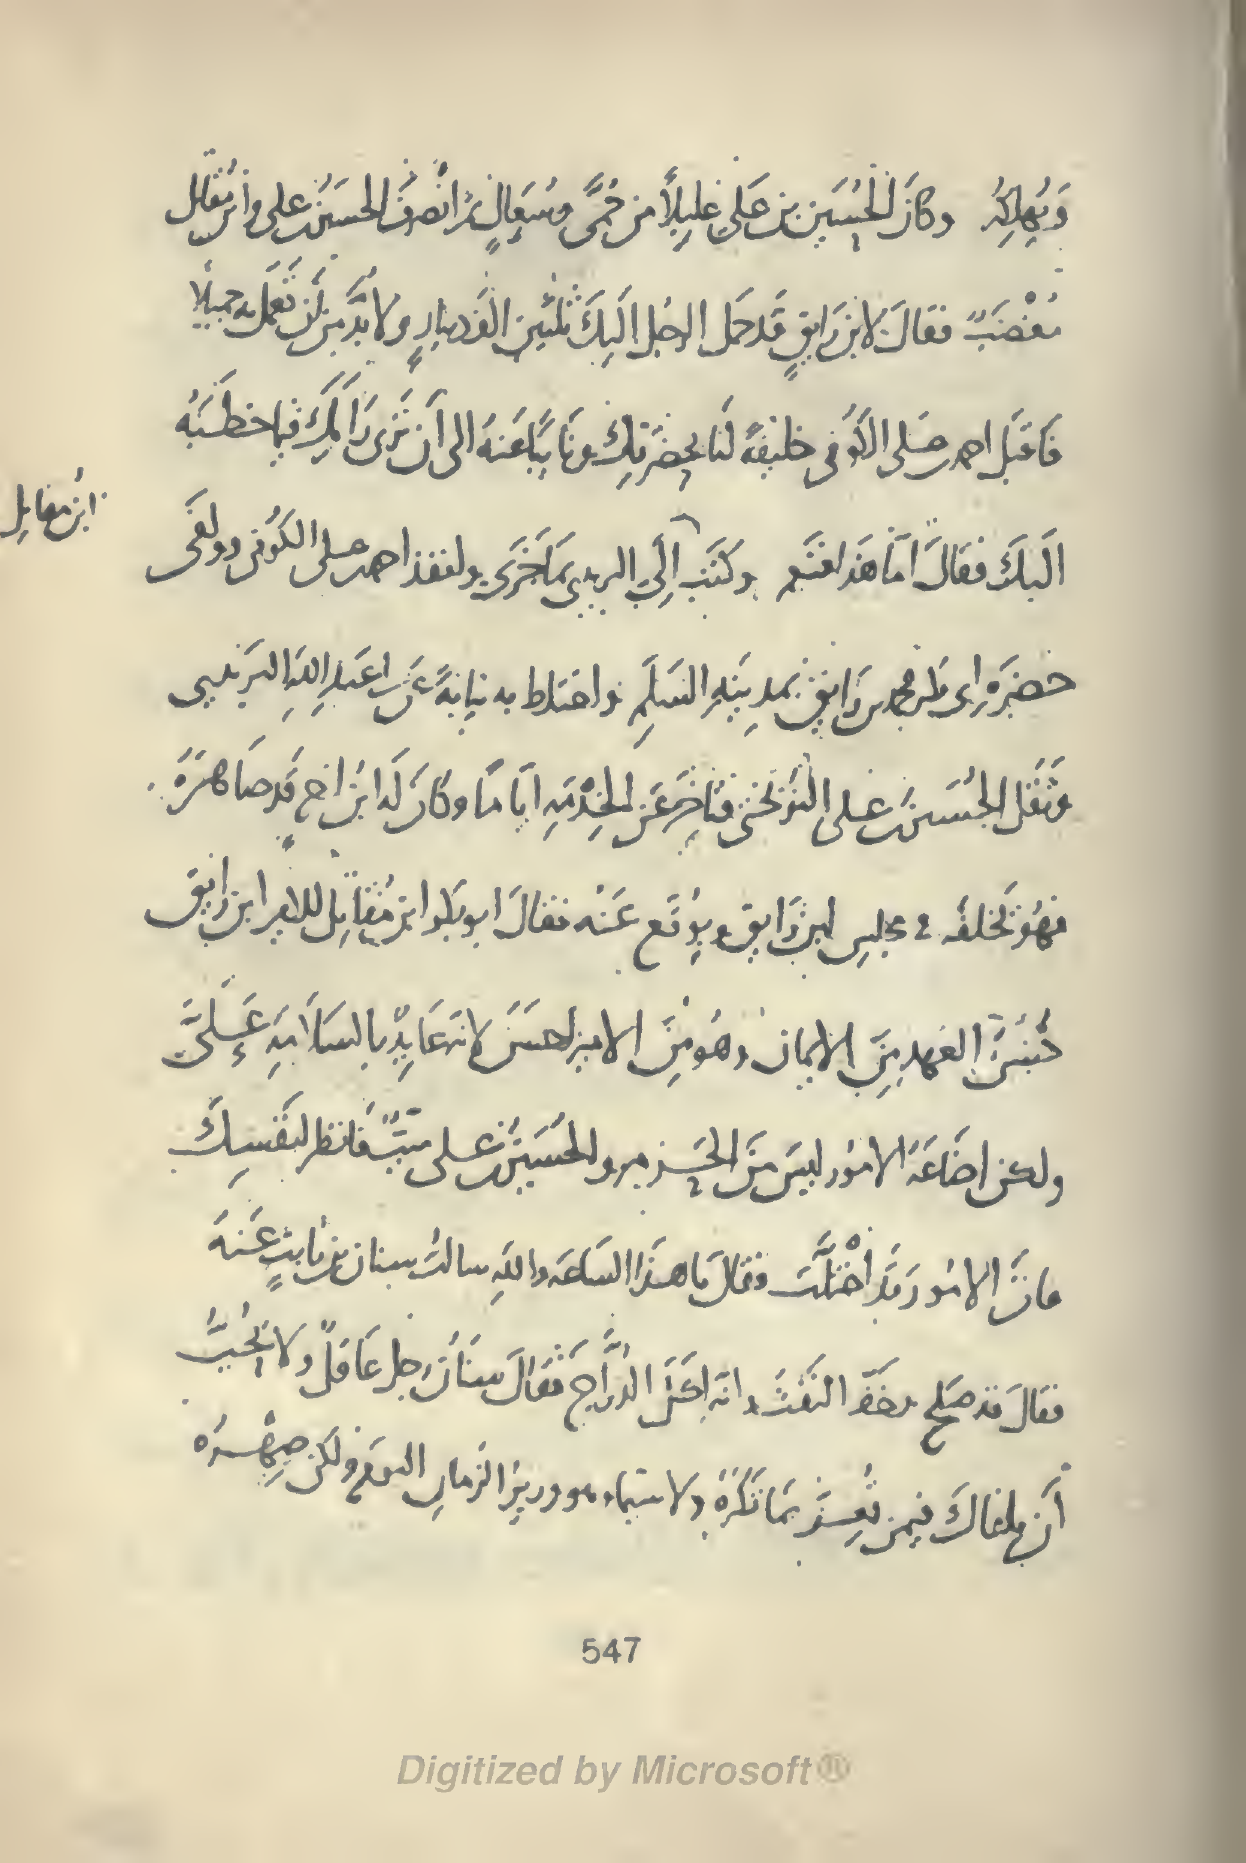 وَيُهلِكِهُ وكانَ الحُسَين بن عَلي عَلِيلًا من حُمَّى وسُعَالٍ ثمّ انْصرَفَ الحسَين بن علي وابن مُقاتل
مُغْضَبٌ فقالَ لابن رَايقٍ قَد حمَل الرجُل اليكَ ثلثين الف دينارٍ ولا بُدَّ من أن تعمَل به جميلًا
فاقبَل احمد بن علي الكُوفي خليفةً لنا بحضرَتِك ونايبًا عَنهُ الى أن ترَى رَايكَ فيما خطبَهُ
ابن مقاتِل
اليكَ فقالَ امّا هَذا فنَعم وكتَب إلَى البريدي بمَا جَرَى ونفذ احمد بن علي الكُوفي ووافى
حضرَة ابن رايق بمدِينَةِ السَلم واختلط به نِيابةً عَن ابي عَبدِ اللهِ البَريدي
وثقُل الحُسَين بن علي النَوبَختي فتاخّر عَن الخِدْمَةِ ايّامًا وكانَ لَه ابن اخ قَد صَاهرَهُ
فهُو يَخلفُه في مجلِس ابن رَايق ويوُقّع عَنْه فقالَ ابو بكر ابن مُقَاتِل للامير ابن رَايق
حُسنُ العَهد مِنَ الايمان وهُو مِنَ الامير احسَن لانهُ عَايِدٌ بالسلامَةِ عَلَيَّ
ولكن اضَاعَة الامُور ليسَ منَ الحَزم والحُسَين بن علي ميّت فَانظر لنَفسِكَ
فانَّ الامُور قَد اخْتلَّت فقالَ يا هذَا السَاعَة والله سالتُ سِنان بن ثابتٍ عَنهُ
فقالَ قد صلح وخَفَّ النَفث وانّه اكَل الدُرَّاج فَقالَ سنَانُ رجل عَاقلٌ ولا يحُبُّ
أن يلقاكَ فيمن تُعزُّ بمَا تكرَهُ ولا سيّما وهو وزير الزمان اليَوم ولكن صِهْرُه
547
Digitized by Microsoft®